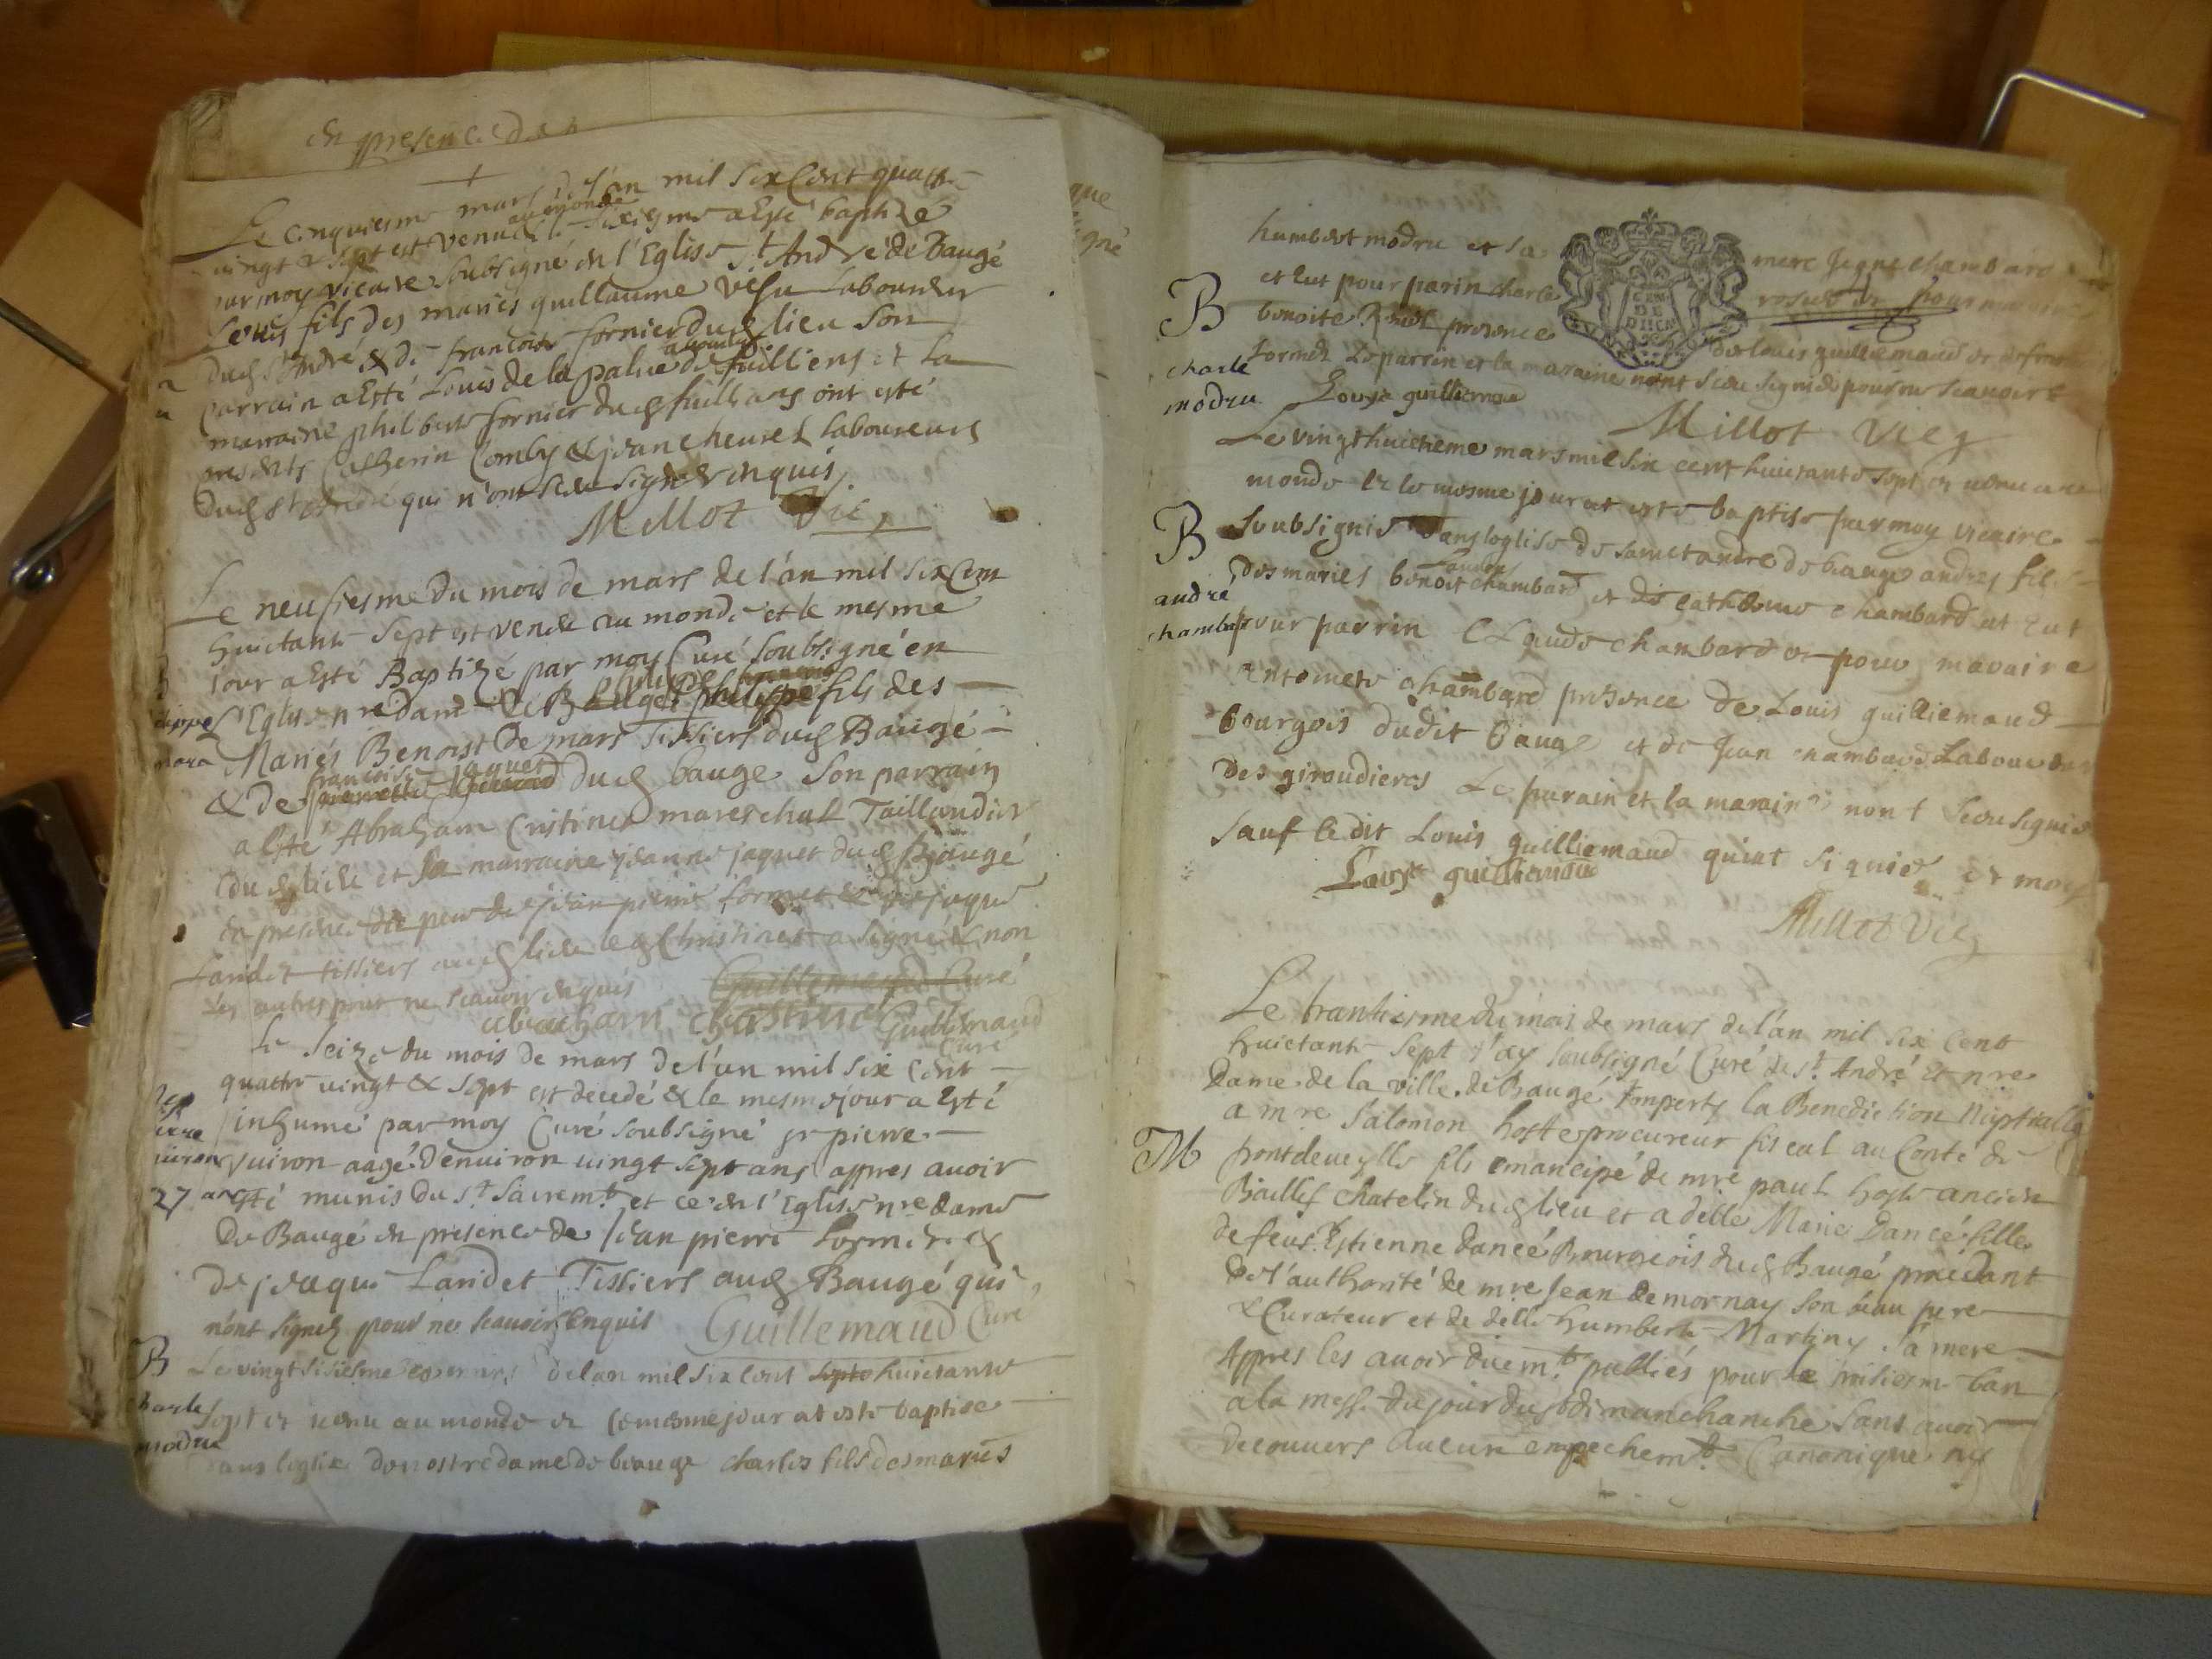 en presence de
Le cinquiesme mars de l'an mil six Cent quattre
vingt & sept est venu au monde le sixiesme a esté baptizé
par moy vicaire soubsigné en l'Eglise St André de Baugé
Louis fils des mariés guillaume vesu Laboureur
dud St André & de francoise fornier dud lieu Son
parrain a Esté Louis de la palue de fuilliens et La
marraine philberte fornier dud fuillians ont esté
presents Catherin Comby & jean cheuret laboureurs
dud St André qui n'ont sceu signer enquis
Millot Vic
Le neufiesme du mois de mars de l'an mil six Cent
huictante Sept est venu au monde et le mesme
jour a Esté Baptizé par moy Curé soubsigné en
l'Eglise nre dame de Baugé philippe fils des
Mariés Benoist De mars Tissiers dud Baugé
& de francoise jaquet dud bauge Son parrain
a Esté Abraham Cristinet mareschal Taillandier
dud lieu et sa marraine jeanne jaquet dud Baugé
en presence de jean pierre Lormet & de jaque
Landet tissiers aud lieu led Christinet a signé & non
les autres pour ne scauoir enquis Guillemaud Curé
abraham christinet Guillemaud
Curé
Le seize du mois de mars de l'an mil six Cent
quattre vingt & sept est decedé & le mesme jour a Esté
inhumé par moy Curé soubsigné pierre
vuiron aagé D'enuiron uingt sept ans appres auoir
27 ans
esté munis du St Sacremt et ce en l'Eglise nre dame
De Baugé en presence de jean pierre Lormet &
de jacque Landet Tissiers aud Baugé qui
n'ont signez pour ne scauoir Enquis Guillemaud Curé
B
Le vingt sisiesme mars de lan mil six Cent septe huictante
Charle
modru
sept et uenu au monde et le mesme jour at este baptise
dans leglise de nostre dame de bauge charles fils des mariés
humbert modru et sa mere chambard
B
et lut pour parin charle
benoite presence
charle
modru
Lormet Le parrin et la maraine nont sceu signé pour ne scauoir
Louys guilliemaud
Millot Vic
Le vingt huictieme mars mil six cent huictante sept et uenu au
monde et le mesme jour at este baptise par moy vicaire
B
Soubsignis dans leglise de sainct andre de bauge andres fils
andre
chambar
des mariés benoit chambard et de catherine chambard at eut
pour parrin Claude chambard et pour maraire
antoinete chambard presence de Louis guilliemaud
bourgois dudit bauge et de Jean chambard Laboureur
des giroudieres Le parain et la maraine nont sceu signié
sauf ledit Louis guilliemaud quiat signié et moy
Louys guilliemaud
Millot Vic
Le trantiesme du mois de mars de l'an mil six cent
huictante Sept j'ay soubsigné Curé de St André et nre
Dame de la ville de Baugé Imperty la Benediction Nuptialle
a mre Salomon hoste procureur fiscal au Conté de
M
pontdeueylle fils emancipé de mre paul hoste ancien
Baillif chatelin dud lieu et a delle Marie Dancé fille
de feu sr Estienne dancé Bourgeois dud Baugé procedant
De l'authorité de mre Jean de mornay Son beau pere
& Curateur et de delle humberte Martiny sa mere
Appres les auoir duemt publiés pour le troisiesme ban
a la messe du jour du dimanche sans auoir
decouuers aucun empechemt Canonique ny